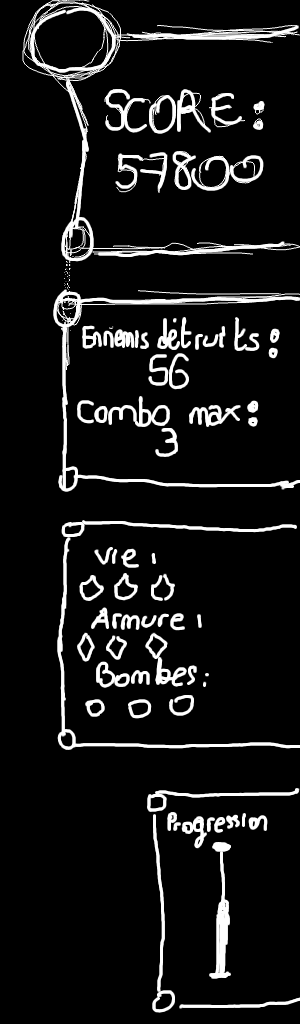 SCORE:
57800
Ennemis détruits :
56
Combo max :
3
Vie :
Armure :
Bombes :
Progression